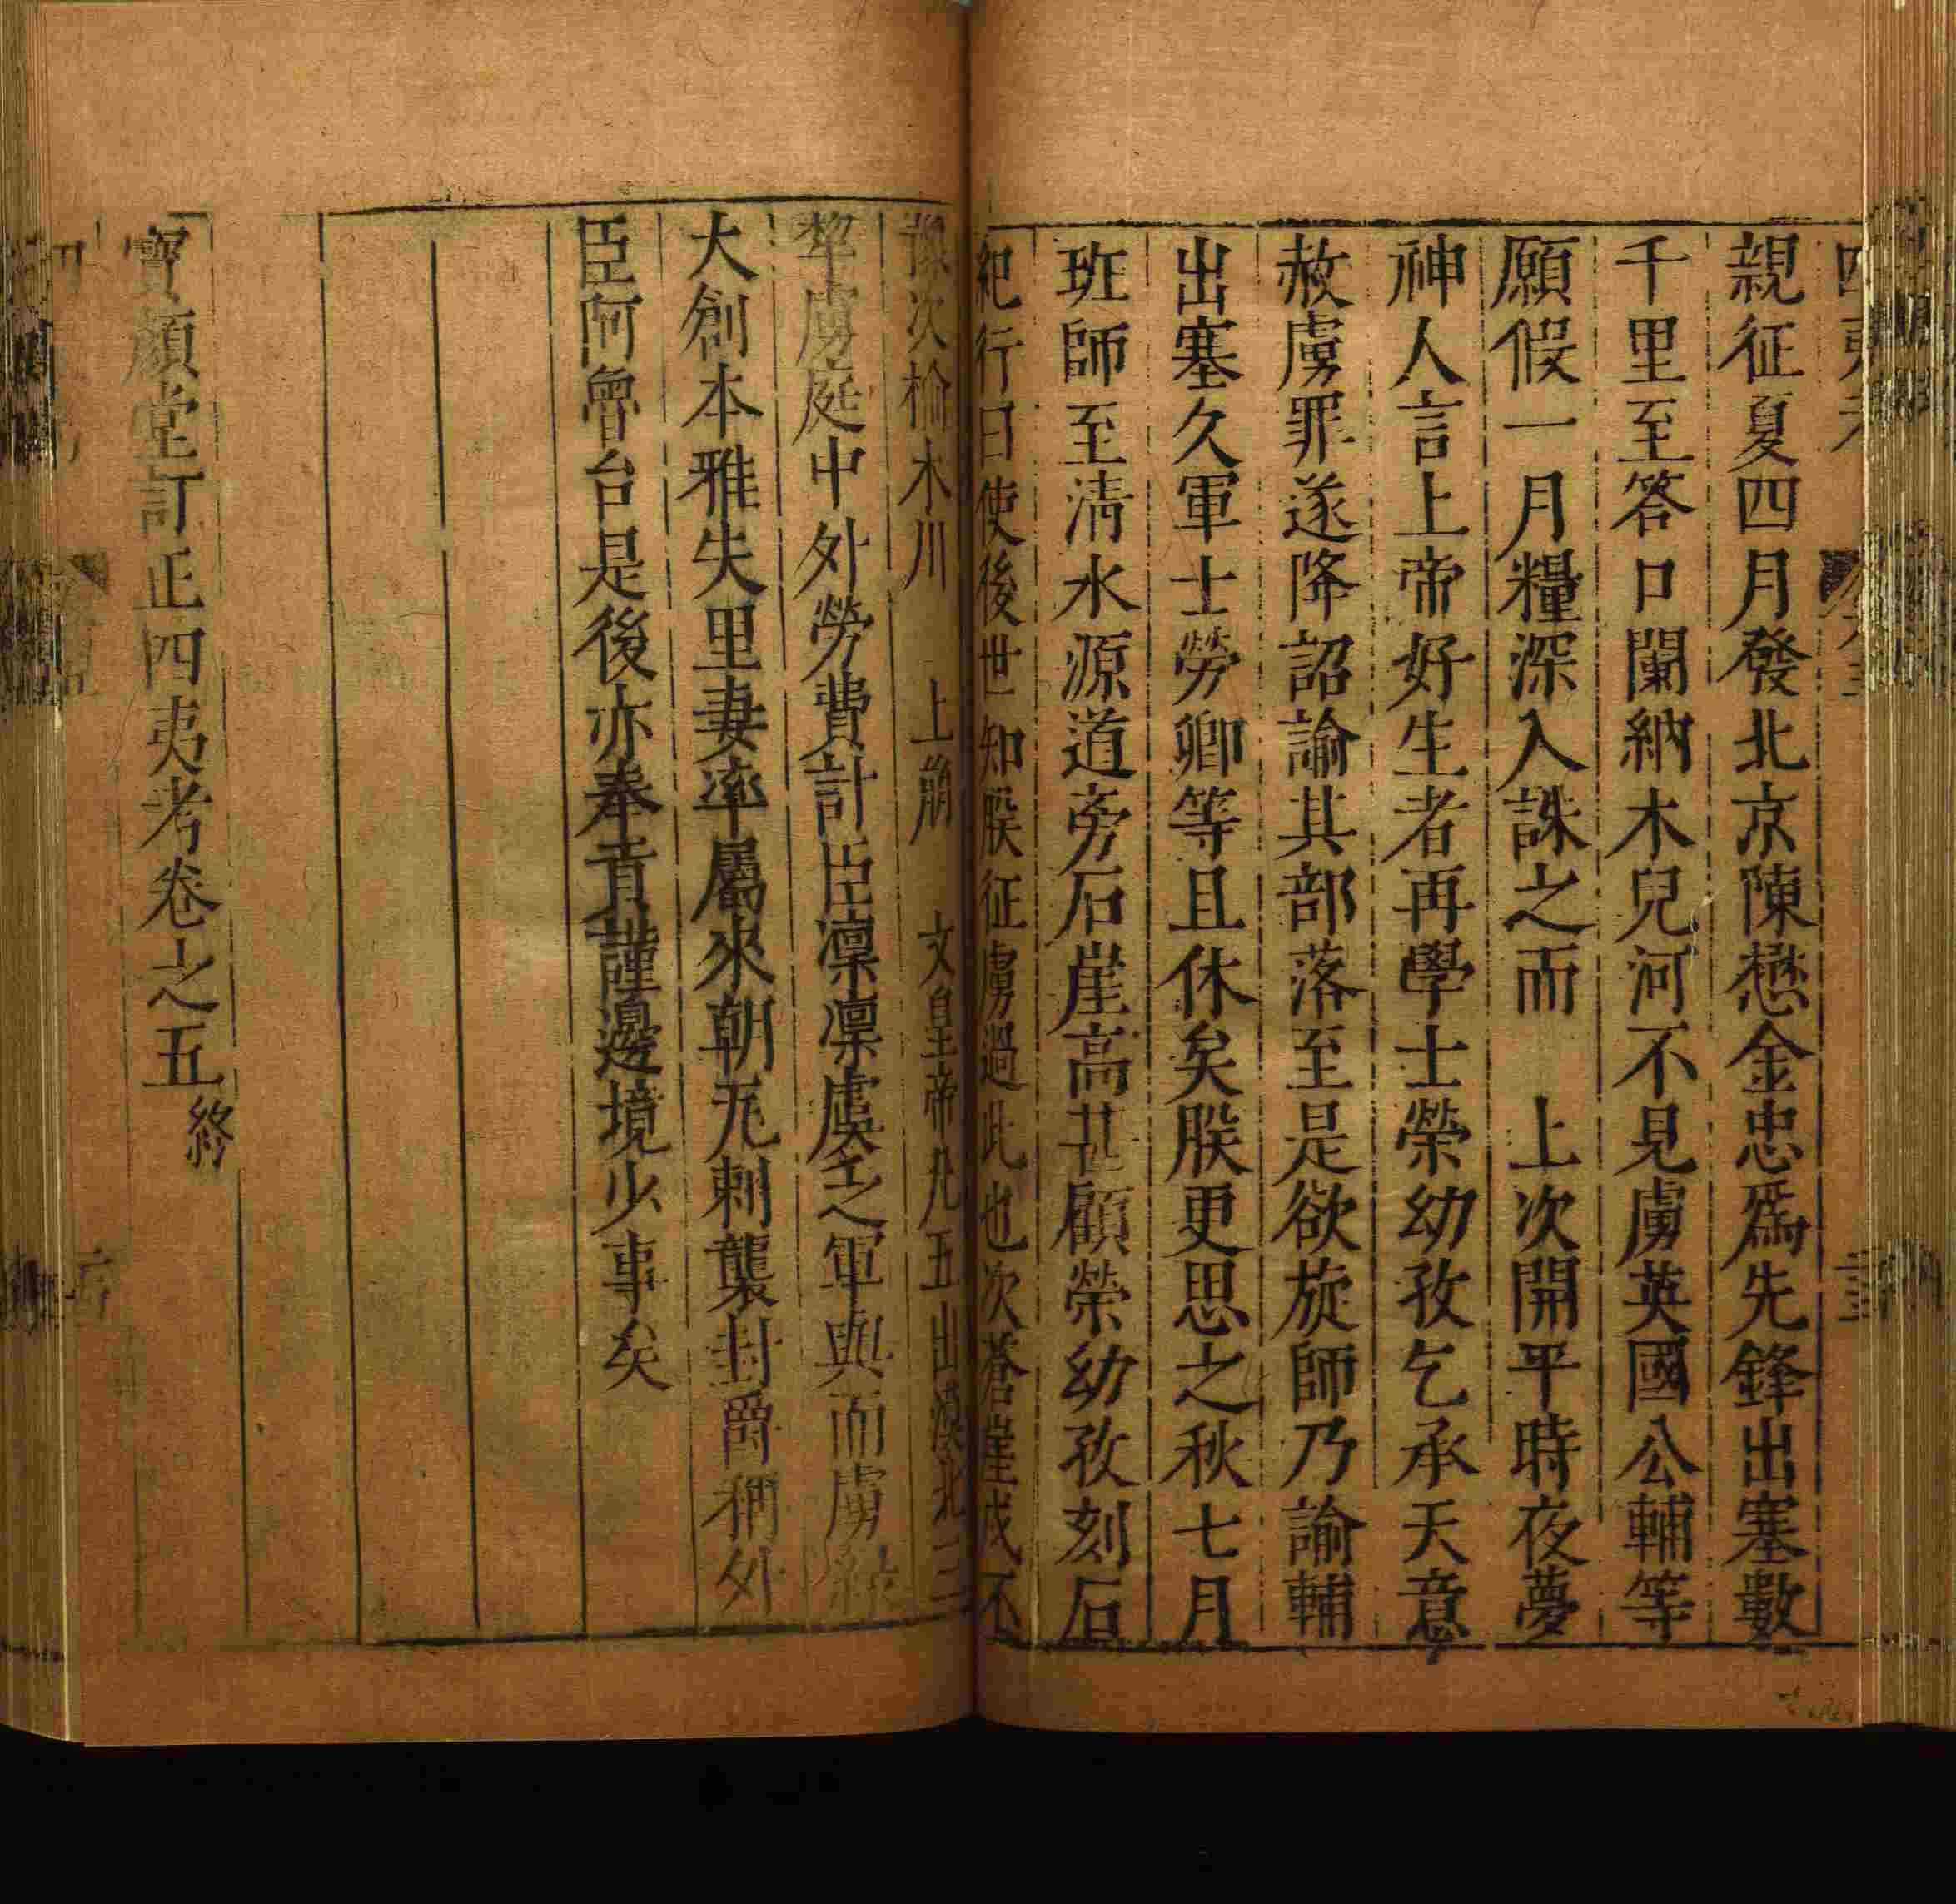 親征夏四月發北京陳懋金忠爲先鋒出塞數
千里至答口闌納木兒河不見虜英國公輔等
願假一月糧深入誅之而　上次開平時夜夢
神人言上帝好生者再學士榮幼孜乞承天意
赦虜罪遂降詔諭其部落至是欲旋師乃諭輔
出塞久軍士勞卿等且休矣朕更思之秋七月
班師至淸水源道旁石崖高甚顧榮幼孜刻石
紀行曰使後世知朕征虜過此也次蒼崖戍不
豫次榆木川　上崩　文皇帝凡五出漠北三
犂虜庭中外勞費計臣凛凛虞乏軍興而虜終
大創本雅失里妻率屬來朝瓦剌襲封爵稱外
臣阿魯台是後亦奉貢謹邊境少事矣
寶顔堂訂正四夷考卷之五終